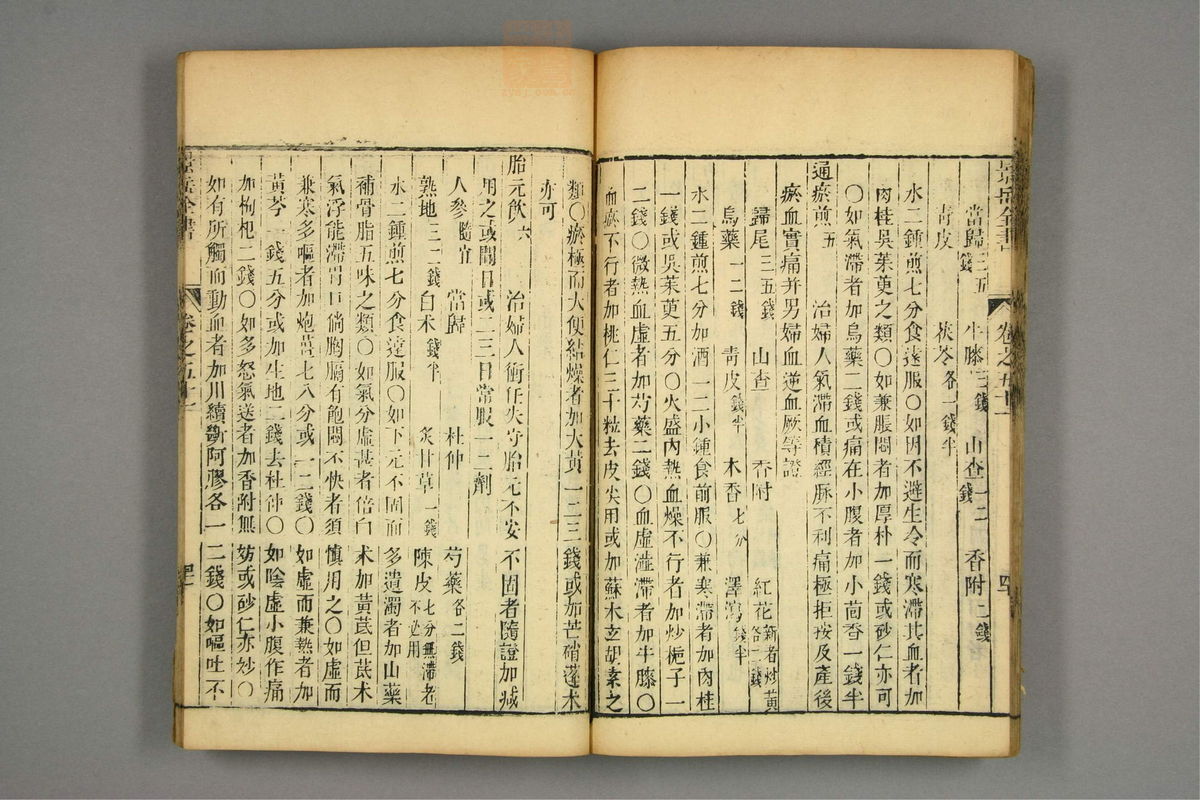 景岳全書 卷之五十一
當歸三五錢 牛膝二錢 山查一二錢 香附二錢
青皮 茯苓各一錢半
水二鍾煎七分食遠服〇如因不避生冷而寒滯其血者加
肉桂吳茱萸之類〇如兼脹悶者加厚朴一錢或砂仁亦可
〇如氣滯者加烏藥二錢或痛在小腹者加小茴香一錢半
通瘀煎五 治婦人氣滯血積經脉不利痛極拒按及產後
瘀血實痛并男婦血逆血厥等證
歸尾三五錢 山查 香附 紅花新者炒黃各二錢
烏藥一二錢 青皮錢半 木香七分 澤瀉錢半
水二鍾煎七分加酒一二小鍾食前服〇兼寒滯者加肉桂
一錢或吳茱萸五分〇火盛內熱血燥不行者加炒梔子一
二錢〇微熱血虛者加芍藥二錢〇血虛澁滯者加牛膝〇
血瘀不行者加桃仁三十粒去皮尖用或加蘇木玄胡索之
類〇瘀極而大便結燥者加大黃一二三錢或加芒硝蓬术
亦可
胎元飲六 治婦人衝任失守胎元不安不固者隨證加減
用之或間日或二三日常服一二劑
人參隨宜 當歸 杜仲 芍藥各二錢
熟地二三錢 白术錢半 炙甘草一錢 陳皮七分無滯者不必用
水二鍾煎七分食遠服〇如下元不固而多遺濁者加山藥
補骨脂五味之類〇如氣分虛甚者倍白术加黃芪但芪术
氣浮能滯胃口倘胸膈有飽悶不快者須慎用之〇如虛而
兼寒多嘔者加炮薑七八分或一二錢〇如虛而兼熱者加
黃芩一錢五分或加生地二錢去杜仲〇如陰虛小腹作痛
加枸杞二錢〇如多怒氣逆者加香附無妨或砂仁亦妙〇
如有所觸而動血者加川續斷阿膠各一二錢〇如嘔吐不
景岳全書 卷之五十一